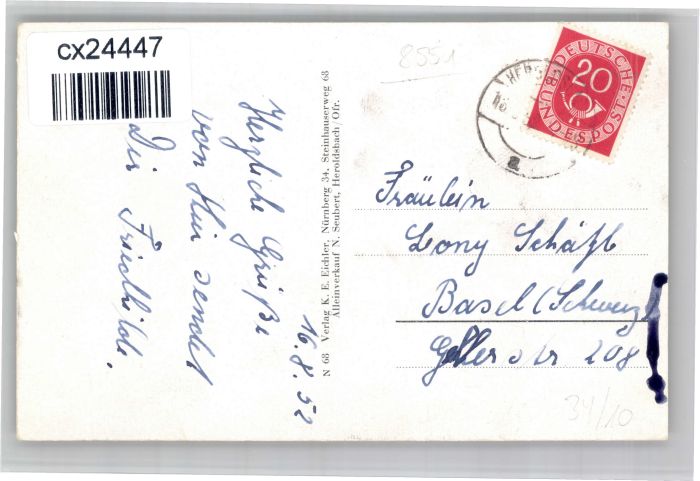 cx24447
8551
DEUTSCHE
BUNDESPOST
20
Herzliche Grüße
von Hier sendet
Dir Friedhilde.
16.8.52
N 68 Verlag K. E. Eichler, Nürnberg 34, Steinhauserweg 68
Alleinverkauf N. Seubert, Heroldsbach/Ofr.
Fräulein
Lony
Basel (Schweiz)
208
34/10